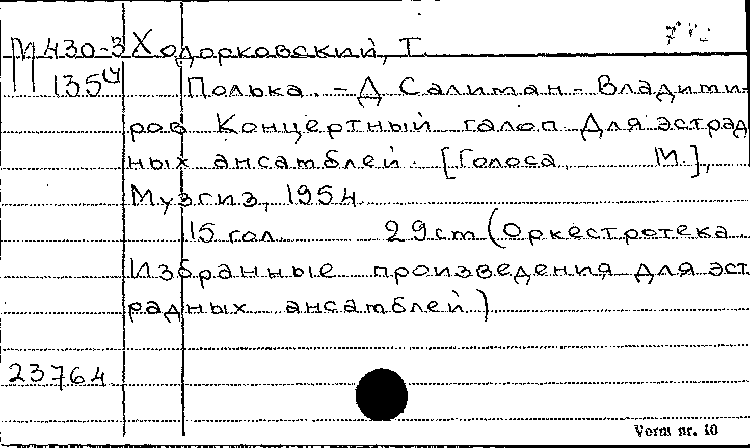 М 430-3 Ходорковский, Т.
135
Полька. - Д. Салиман-Владими-
ров Концертный галоп Для эстрад
ных ансамблей. [Голоса М.],
Музгиз, 1954
15 гол. 29 cm (Оркестротека
Избранные произведения для эст
радных ансамблей)
23764
Vorm nr. 10